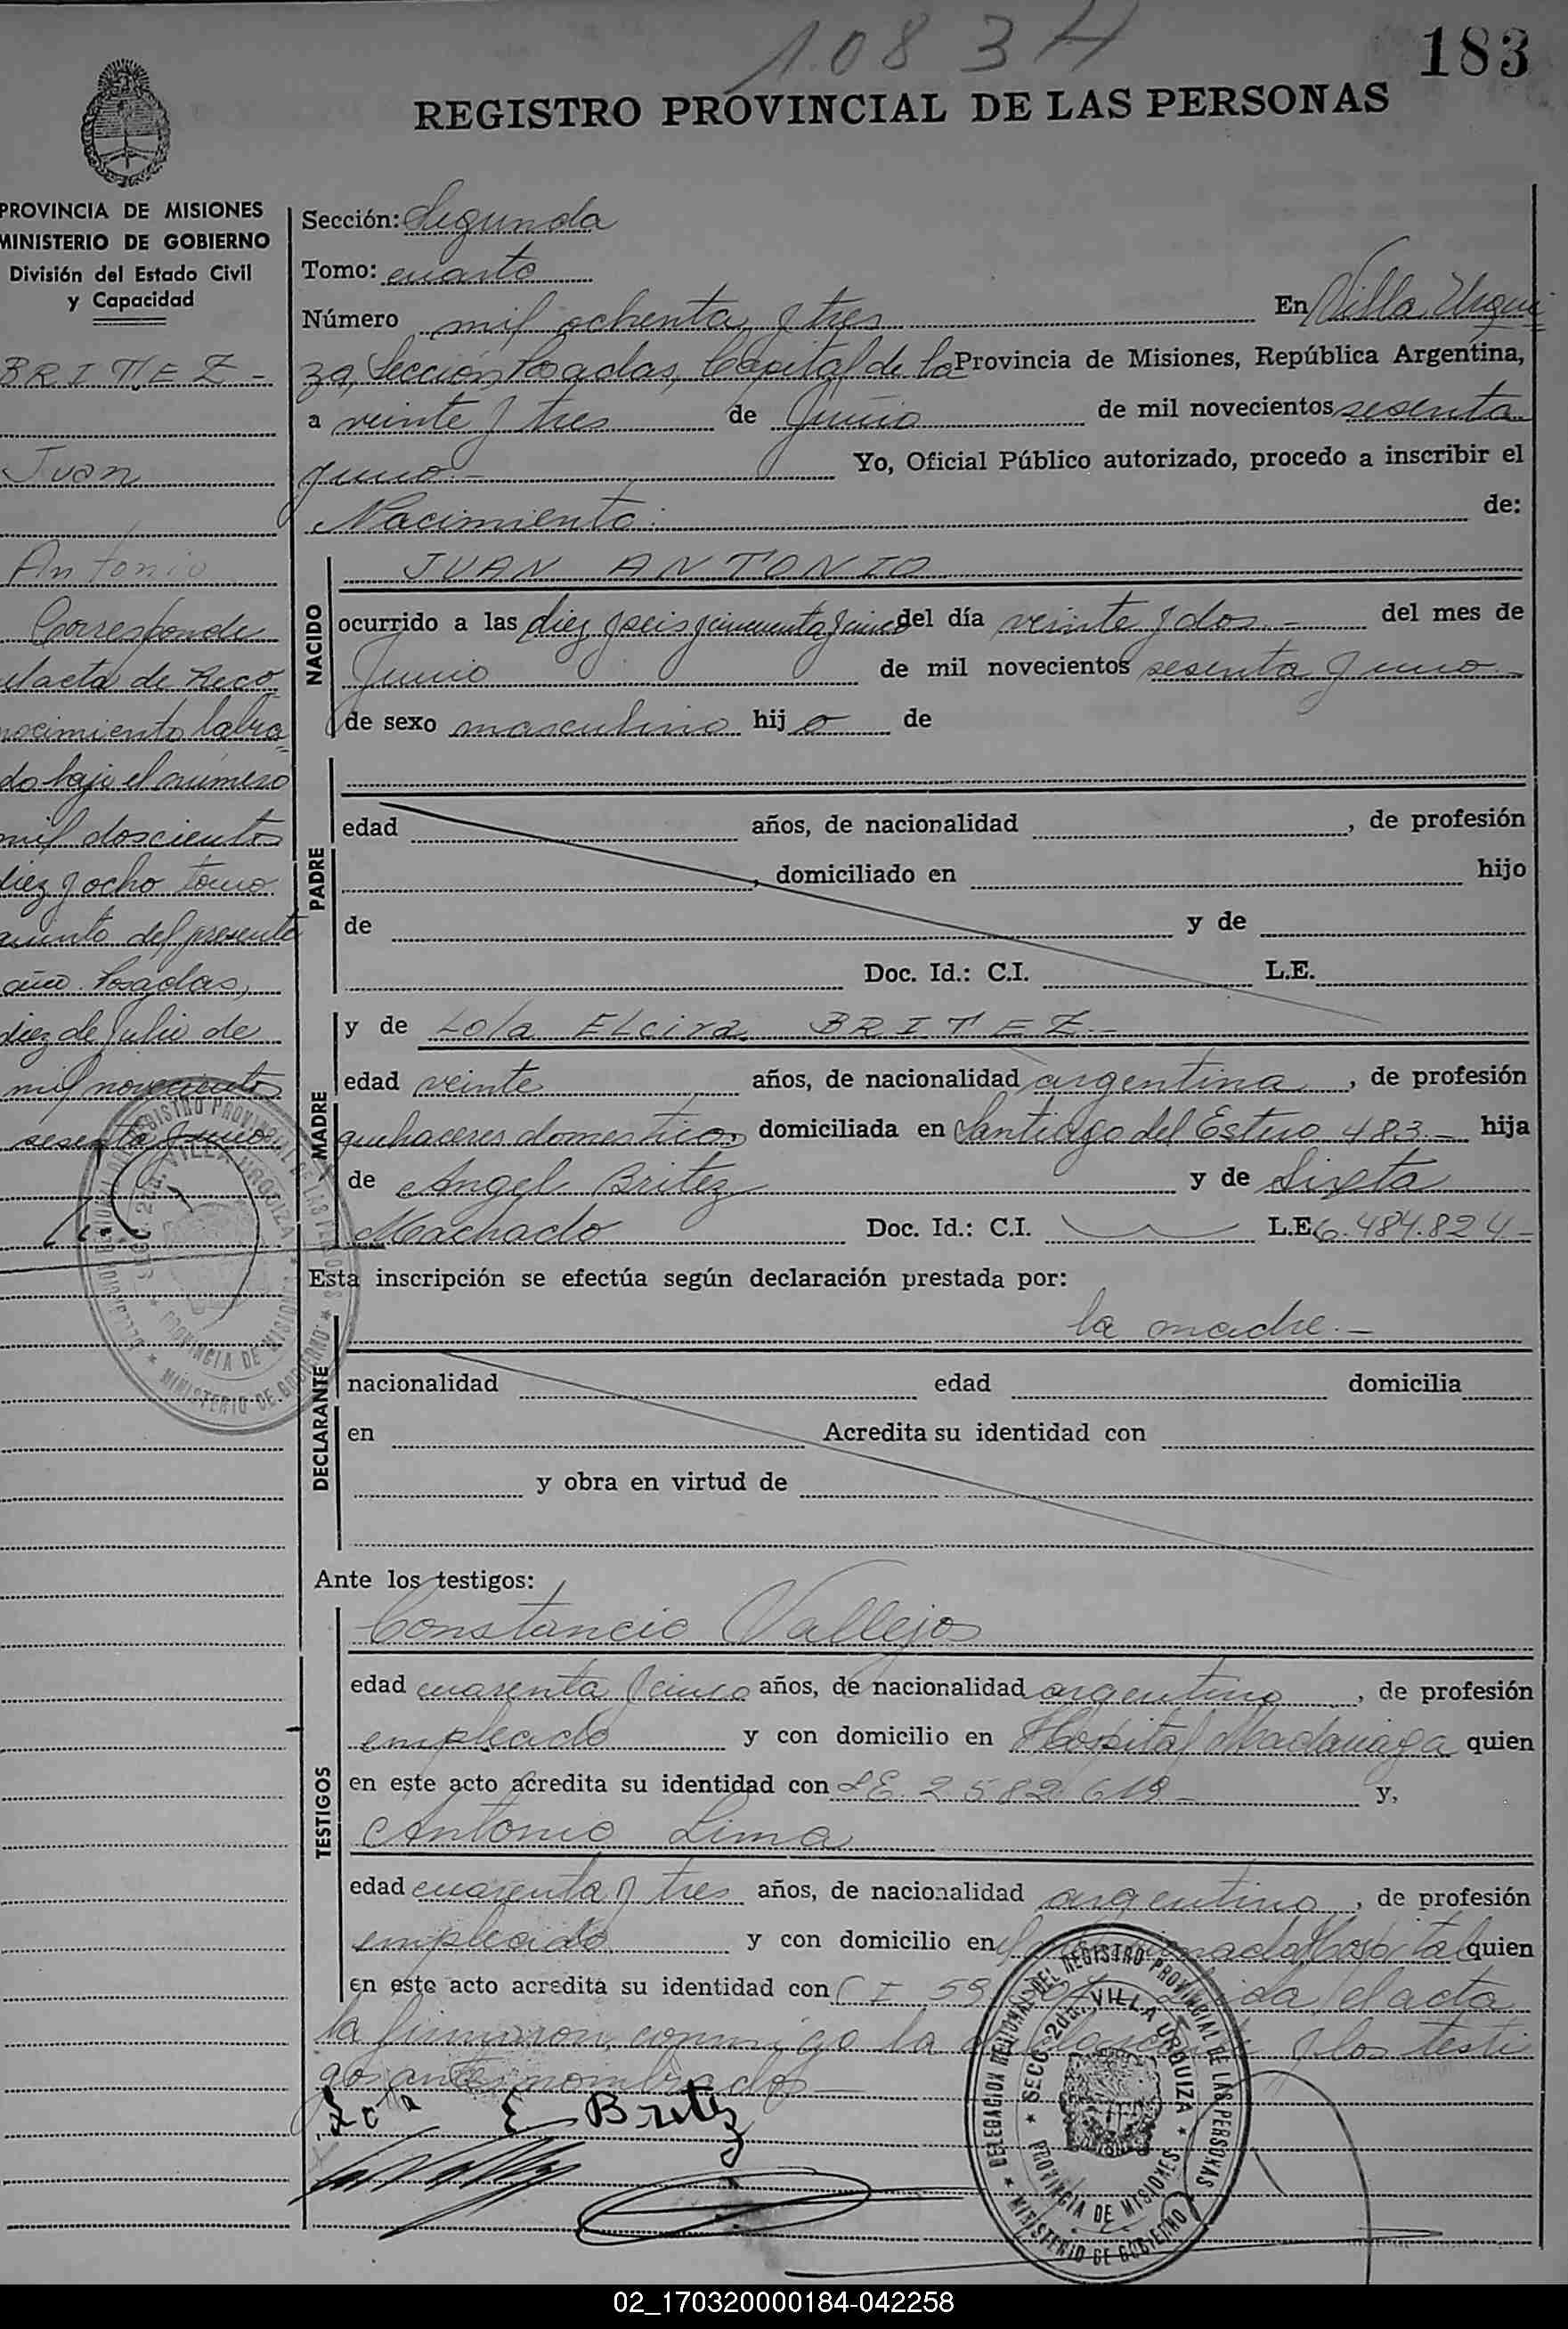 10834
183
REGISTRO PROVINCIAL DE LAS PERSONAS
PROVINCIA DE MISIONES
MINISTERIO DE GOBIERNO
División del Estado Civil
y Capacidad
BRITEZ -
Juan
Antonio
Corresponde
el acta de Reco
nocimiento labra=
do bajo el número
mil doscientos
diez y ocho tomo
quinto del presente
año. Posadas,
diez de Julio de
mil novecientos
sesenta y uno
Sección: Segunda
Tomo: cuarto
Número mil ochenta y tres En Villa Urqui=
za, Sección Posadas, Capital de la Provincia de Misiones, República Argentina,
a veinte y tres de Junio de mil novecientos sesenta
y uno.- Yo, Oficial Público autorizado, procedo a inscribir el
Nacimiento. de:
NACIDO
JUAN ANTONIO
ocurrido a las diez y seis y cincuenta y cinco del día veinte y dos.- del mes de
Junio de mil novecientos sesenta y uno.-
de sexo masculino hijo de
PADRE
edad años, de nacionalidad , de profesión
, domiciliado en hijo
de y de
Doc. Id.: C.I. L.E.
MADRE
y de Lola Elcira BRITEZ.-
edad veinte años, de nacionalidad argentina , de profesión
quehaceres domesticos, domiciliada en Santiago del Estero 483.- hija
de Angel Britez y de Sixta
Machado Doc. Id.: C.I. L.E. 6.484.824-
Esta inscripción se efectúa según declaración prestada por:
la madre.-
DECLARANTE
nacionalidad edad domicilia
en Acredita su identidad con
y obra en virtud de
Ante los testigos:
TESTIGOS
Constancio Vallejos
edad cuarenta y cinco años, de nacionalidad argentino , de profesión
empleado y con domicilio en Hospital Madariaga quien
en este acto acredita su identidad con L.E. 2582619- y,
Antonio Lima
edad cuarenta y tres años, de nacionalidad argentino , de profesión
empleado y con domicilio en Hospital quien
en este acto acredita su identidad con C I 59 el acta
la firmaron conmigo la y los testi
gos antes nombrados-
Lola E Britez
DELEGACION REGIONAL DEL REGISTRO PROVINCIAL DE LAS PERSONAS
SECC. 2da. VILLA URQUIZA
PROVINCIA DE MISIONES
MINISTERIO DE GOBIERNO
02_170320000184-042258